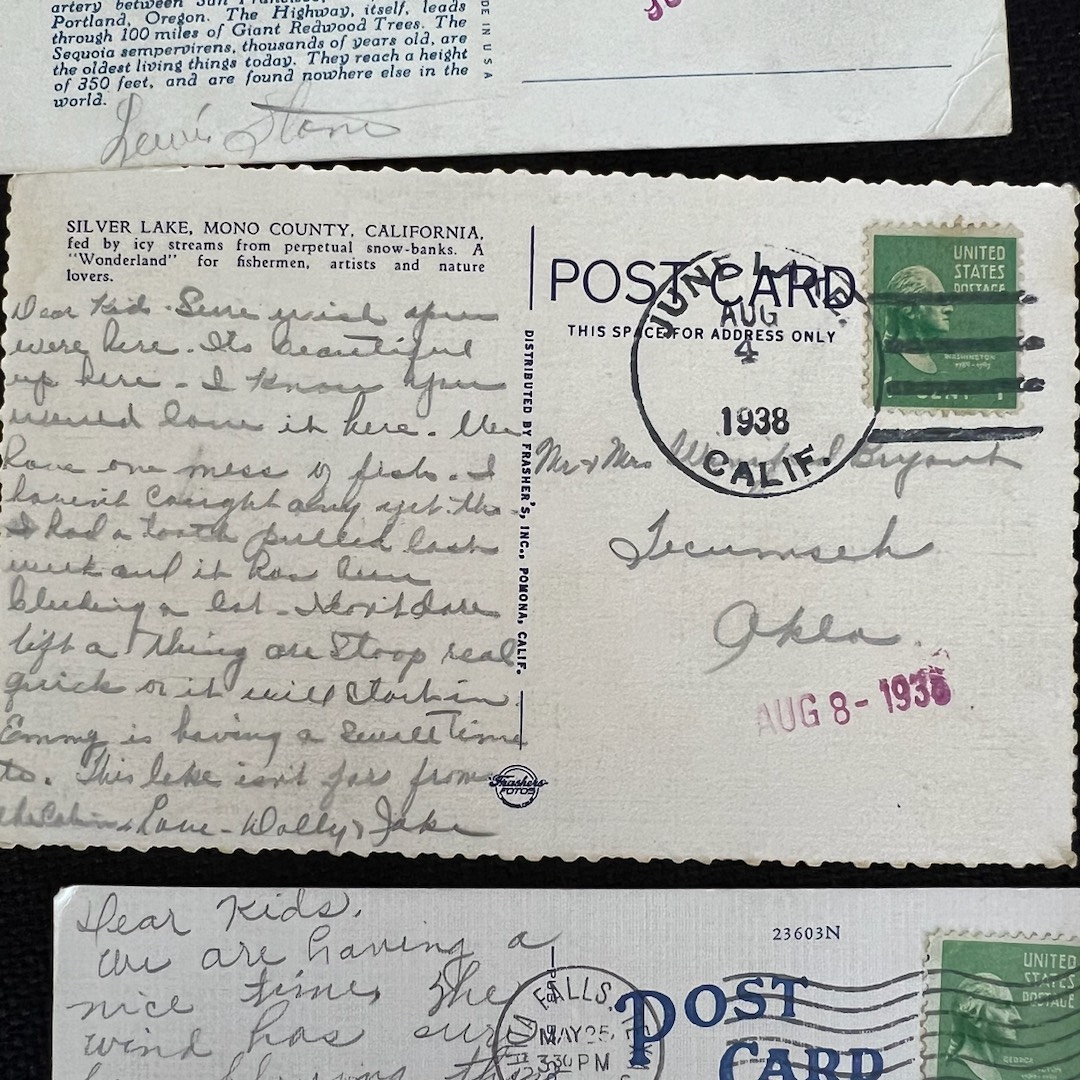 artery between San Francisco,
Portland, Oregon. The Highway, itself, leads
through 100 miles of Giant Redwood Trees. The
Sequoia sempervirens, thousands of years old, are
the oldest living things today. They reach a height
of 350 feet, and are found nowhere else in the
world.
DE IN U S A
SILVER LAKE, MONO COUNTY, CALIFORNIA,
fed by icy streams from perpetual snow-banks. A
"Wonderland" for fishermen, artists and nature
lovers.
Dear Kids - Sure wish you
were here. Its beautiful
up here - I know you
would love it here. We
have one mess of fish. I
haven't caught any yet. tho.
I had a tooth pulled last
week and it has been
bleeding a lot - I don't dare
lift a thing are stoop real
quick or it will start in.
Emmy is having a swell time
to. This lake isn't far from
the Cabin. Love - Dolly & Jake
DISTRIBUTED BY FRASHER'S, INC., POMONA, CALIF.
Frashers
FOTOS
POST CARD
THIS SPACE FOR ADDRESS ONLY
JUNE LAKE
AUG
4
1938
CALIF.
UNITED
STATES
POSTAGE
WASHINGTON
Mr & Mrs Bryant
Tecumseh
Okla.
AUG 8 - 1938
Dear Kids,
We are having a
nice time, The
wind has sure
23603N
FALLS, TEX
MAY 25
3 30 PM
POST
CARD
UNITED
STATES
POSTAGE
GEORGE